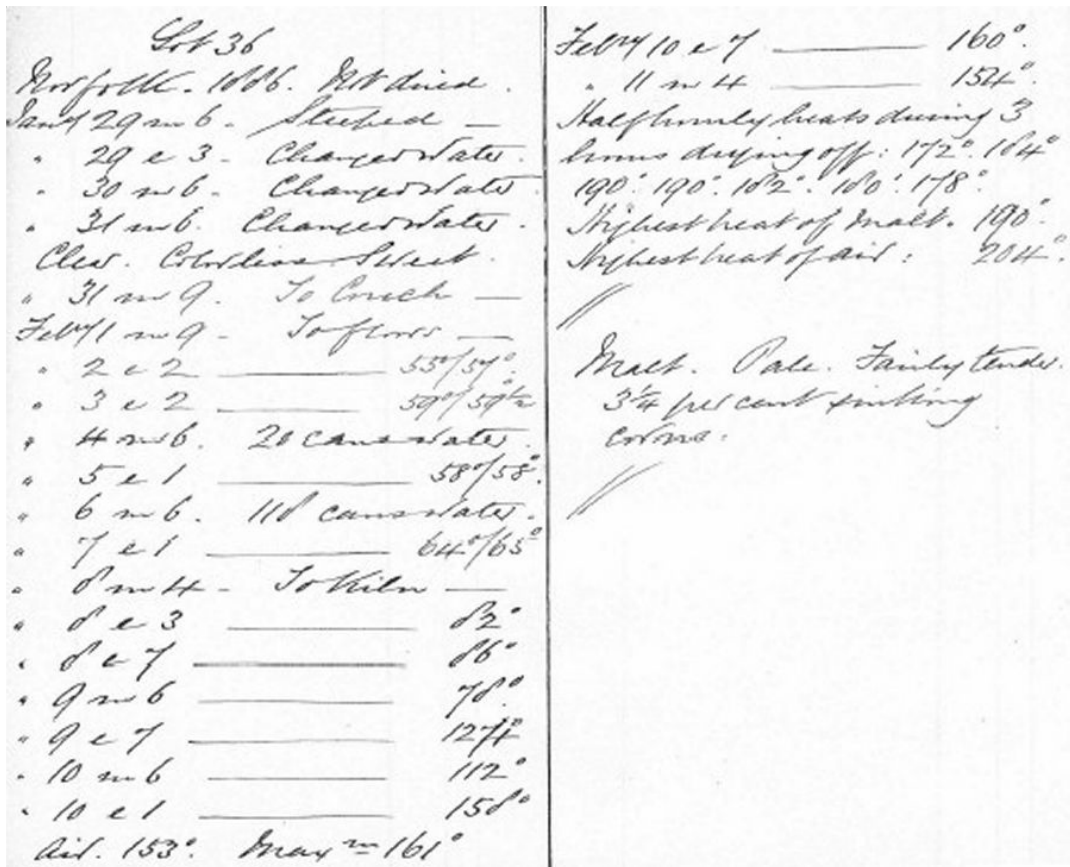 Lot 36
Norfolk. 1886. Not dried.
Jany 29 m 6. Steeped —
" 29 e 3. Changed Water.
" 30 m 6. Changed Water.
" 31 m 6. Changed Water.
Clear. Colorless. Sweet.
" 31 m 9. To Couch —
Febry 1 m 9. To floor —
" 2 e 2 — 55°/57°.
" 3 e 2 — 59°/59½
" 4 m 6. 20 cans water.
" 5 e 1 — 58°/58°.
" 6 m 6. 118 cans water.
" 7 e 1 — 64°/65°
" 8 m 4 - To Kiln —
" 8 e 3 — 82°
" 8 e 7 — 86°
" 9 m 6 — 78°
" 9 e 7 — 127½°
" 10 m 6 — 112°
" 10 e 1 — 158°
Air. 153°. Maxm 161°
Febry 10 e 7 — 160°.
" 11 m 4 — 154°.
Half hourly heats during 3
hours drying off: 172°. 184°
190°. 190°. 182°. 180°. 178°.
Highest heat of Malt. 190°.
Highest heat of air: 204°.
//
Malt. Pale. Fairly tender.
3¼ per cent sinking
corns.
//